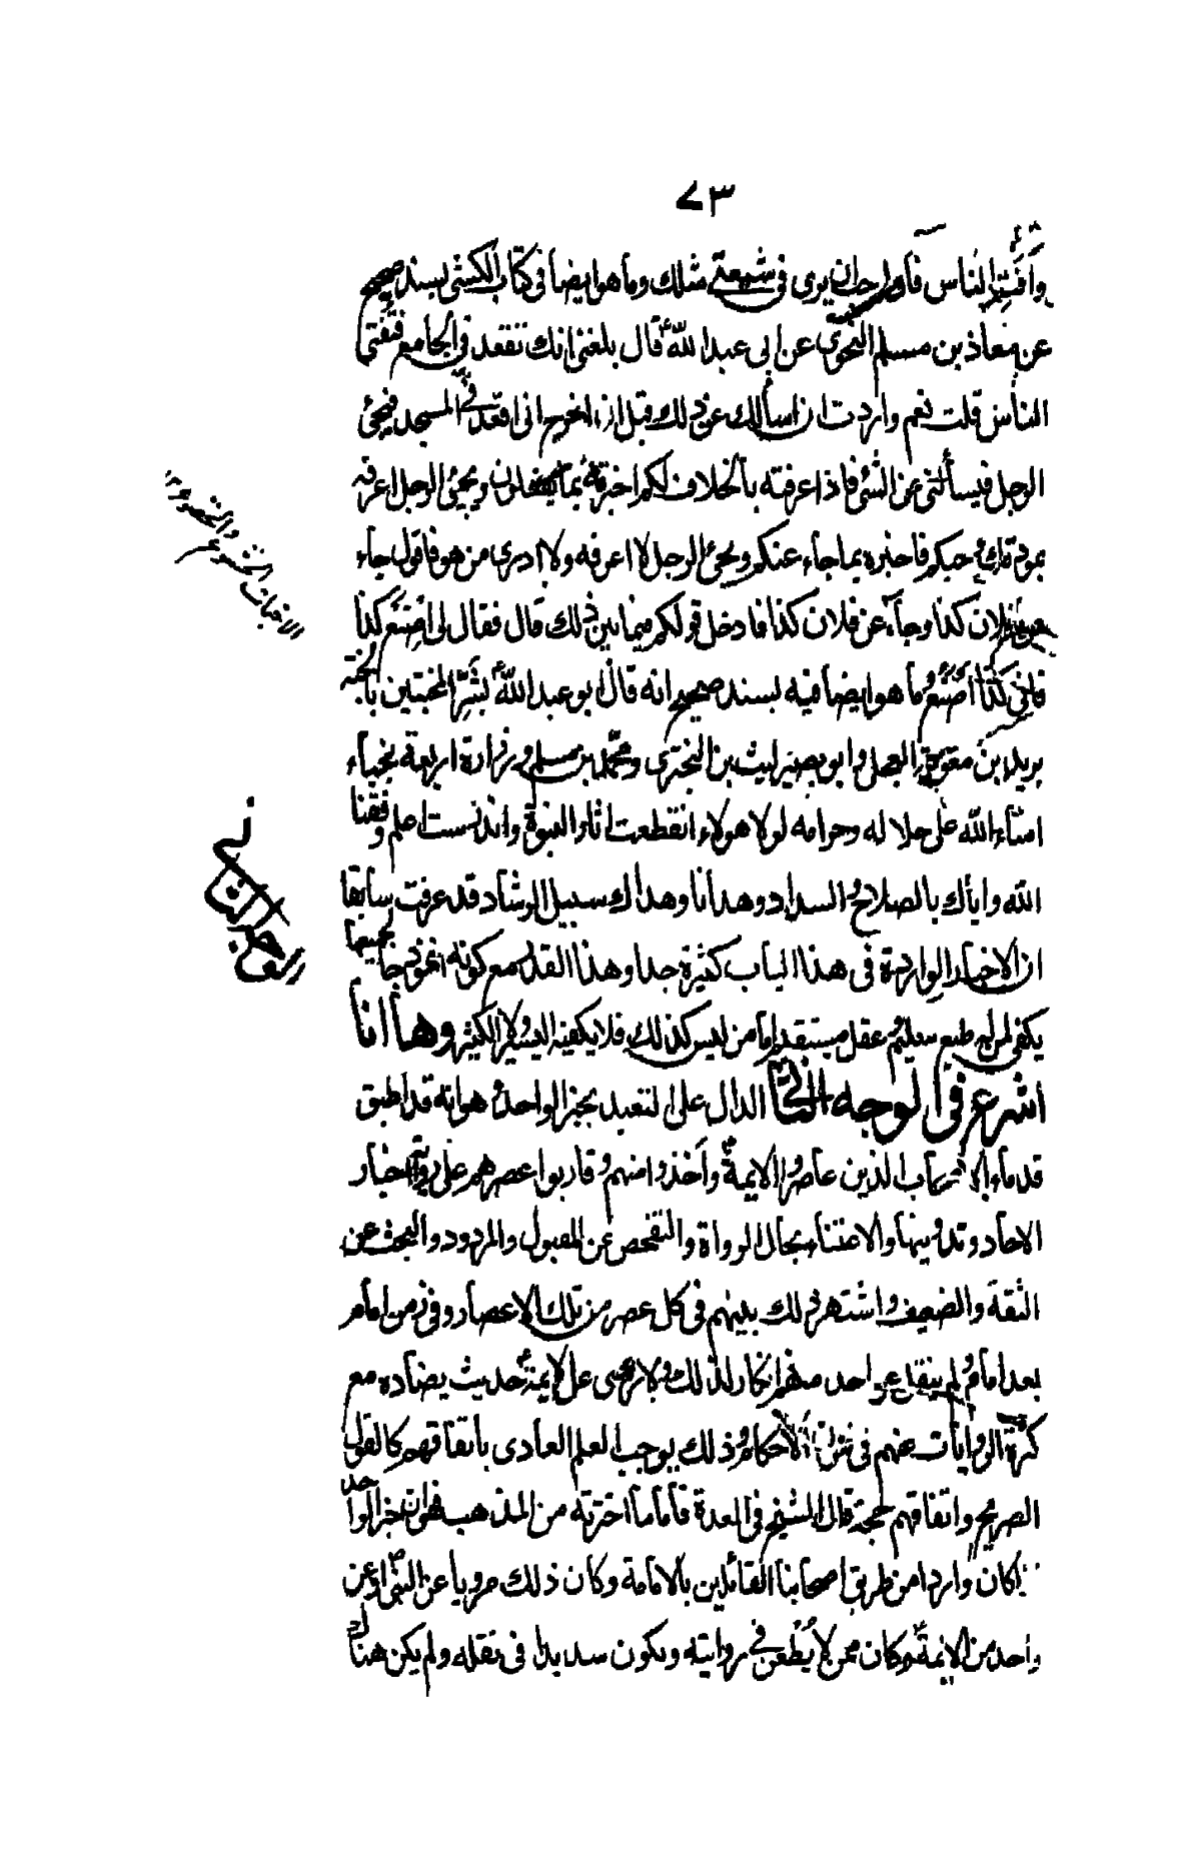 ٧٣
وافت الناس فانى احب ان يرى فى شيعتى مثلك وما هو ايضا فى كتاب الكشى بسند صحيح
عن معاذ بن مسلم النحوى عن ابى عبد الله ع قال بلغنى انك تقعد فى الجامع فتفتى
الناس قلت نعم واردت ان اسألك عن ذلك قبل ان اخرج انى اقعد فى المسجد فيجئ
الرجل فيسألنى عن الشئ فاذا عرفته بالخلاف لكم اخبرته بما يفعلون ويجئ الرجل اعرفه
بمودتكم وحبكم فاخبره بما جاء عنكم ويجئ الرجل لا اعرفه ولا ادرى من هو فاقول جاء
عن فلان كذا وجاء عن فلان كذا فادخل قولكم فيما بين ذلك قال فقال لى اصنع كذا
فانى كذا اصنع وما هو ايضا فيه بسند صحيح انه قال ابو عبد الله ع بشر المخبتين بالجنة
بريد بن معوية العجلى وابو بصير ليث بن البخترى ومحمد بن مسلم وزرارة اربعة نجباء
امناء الله على حلاله وحرامه لولا هولاء انقطعت اثار النبوة واندرست اعلم وفقنا
الله واياك بالصلاح والسداد وهدانا وهداك سبيل الرشاد قد عرفت سابقا
ان الاخبار الواردة فى هذا الباب كثيرة جدا وهذا القدر مع كونه انموذجا لجميعها
يكفى لمن له طبع سليم وعقل مستقيم واما من ليس كذلك فلا يكفيه اليسير ولا الكثير وها انا
اشرع فى الوجه الثانى الدال على التعبد بخبر الواحد وهو انه قد اطبق
قدماء الاصحاب الذين عاصروا الايمة ع واخذوا منهم وقاربوا عصرهم على رواية اخبار
الاحاد وتدوينها والاعتناء بحال الرواة والتفحص عن المقبول والمردود والبحث عن
الثقة والضعيف واشتهر ذلك بينهم فى كل عصر من تلك الاعصار وفى زمن امام
بعد امام ولم ينقل عن احد منهم انكار لذلك ولا روى عن الايمة ع حديث يضاده مع
كثرة الروايات عنهم فى فنون الاحكام وذلك يوجب العلم العادى باتفاقهم كالقول
الصريح واتفاقهم حجة قال الشيخ فى العدة فاما ما اخترته من المذهب فهو ان خبر الواحد
اذا كان واردا من طريق اصحابنا القائلين بالامامة وكان ذلك مرويا عن النبى ص او عن
واحد من الائمة ع وكان ممن لا يطعن فى روايته ويكون سديدا فى نقله ولم يكن هناك
الاخبات الخشوع والخضوع
الوجه الثانى